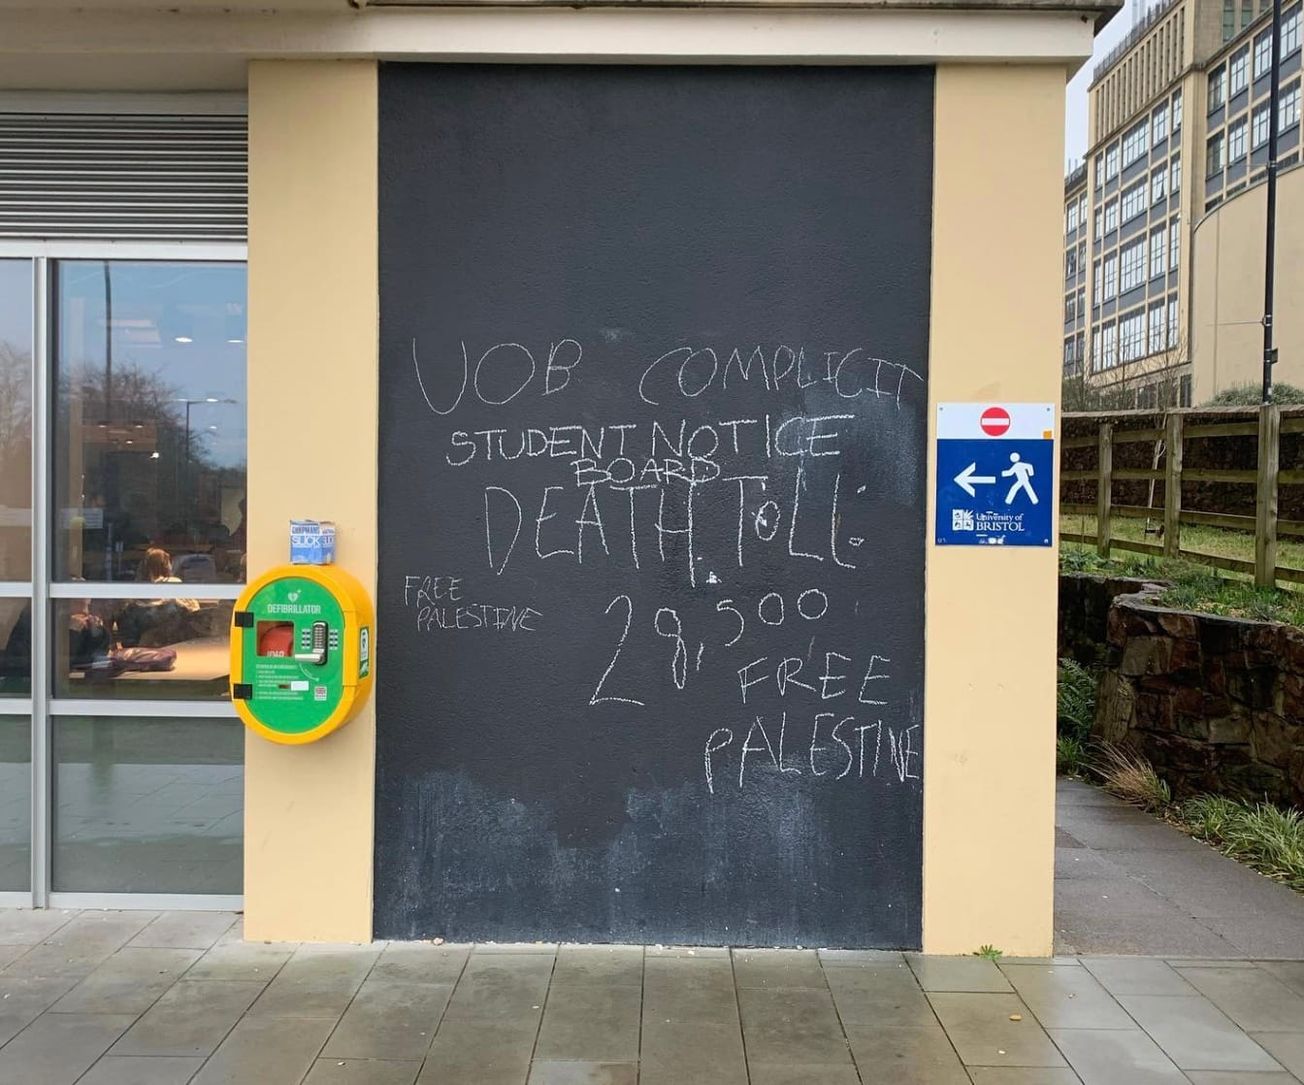 UOB COMPLICIT
STUDENT NOTICE
BOARD
DEATH ToLL:
FREE
PALESTINE
29,500
FREE
PALESTINE
DEFIBRILLATOR
University of
BRISTOL